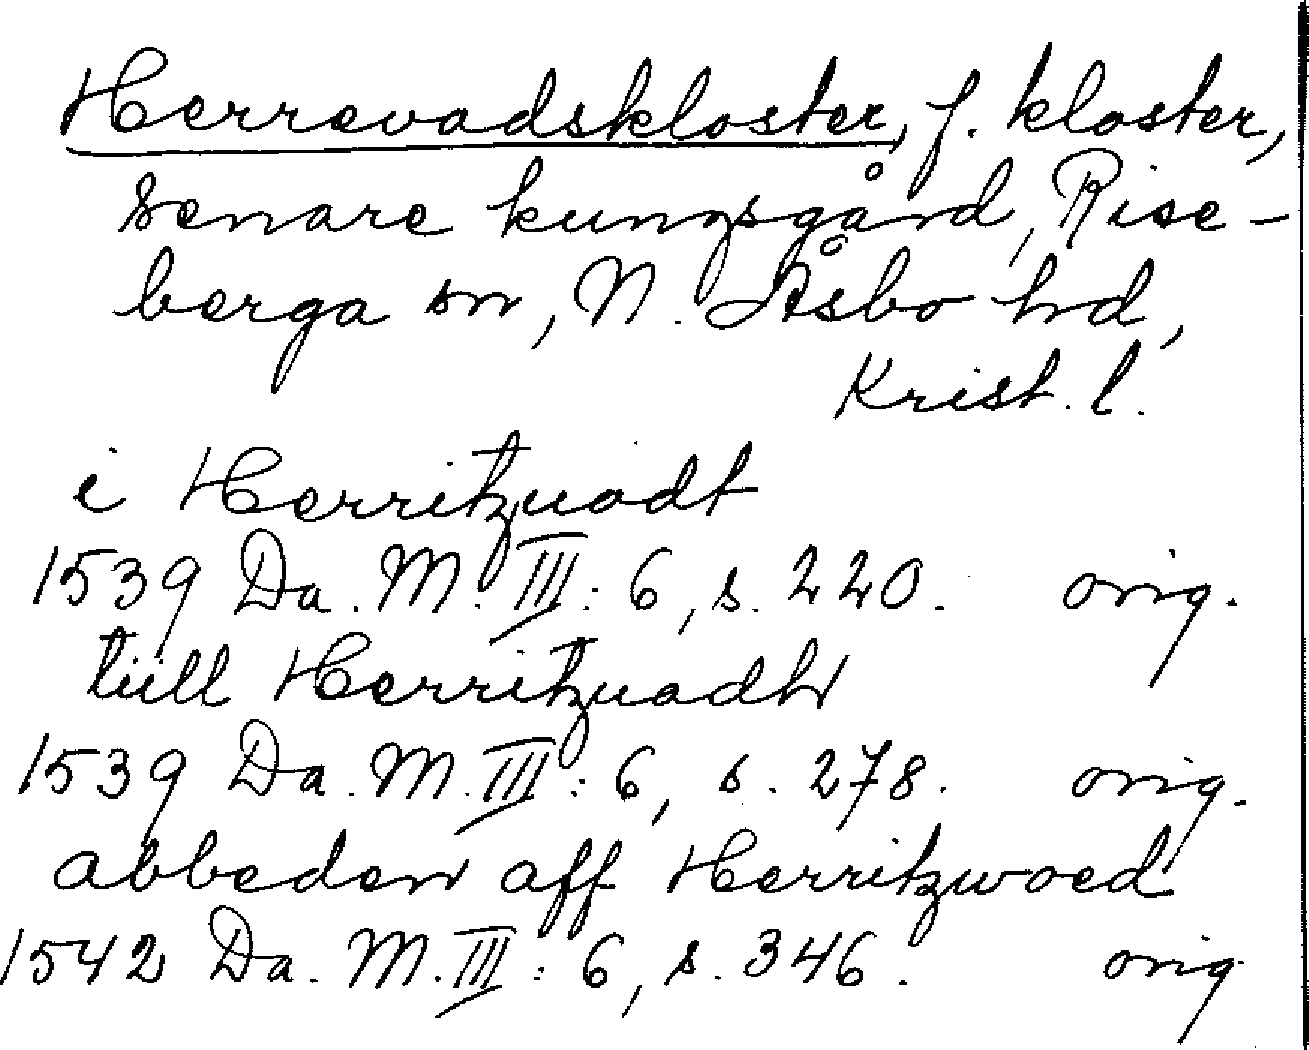 Herrevadskloster, f. kloster,
senare kungsgård, Rise-
berga sn, N. Åsbo hd,
Krist. l.
i Herritzuadt
1539 Da. M. III: 6, s. 220. orig.
tiill Herritzuadh
1539 Da. M. III: 6, s. 278. orig.
abbeden aff Herritzwoed
1542 Da. M. III: 6, s. 346. orig